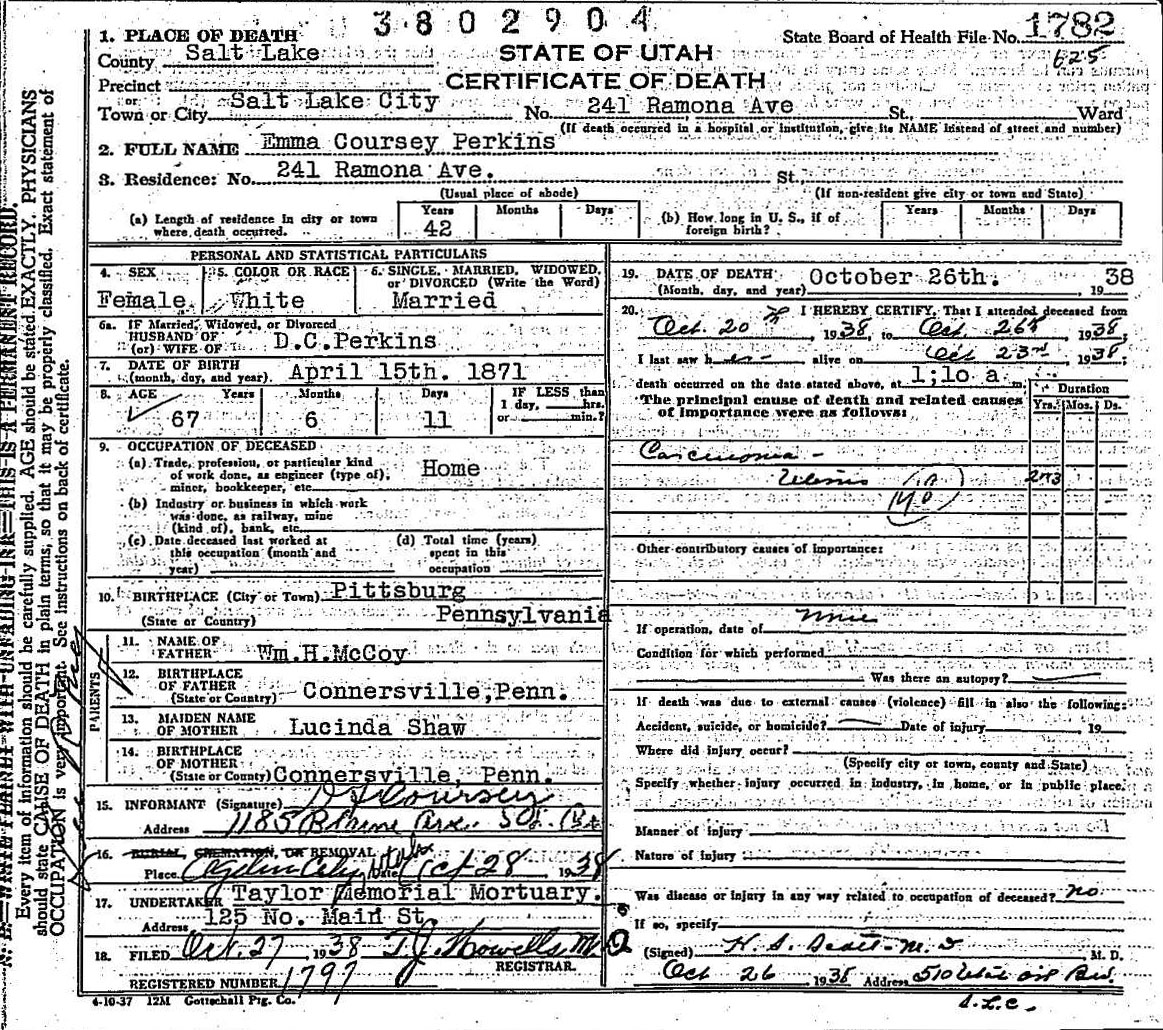 3802904
1. PLACE OF DEATH
State Board of Health File No. 1782
County Salt Lake
STATE OF UTAH
625
Precinct
CERTIFICATE OF DEATH
or
Town or City Salt Lake City No. 241 Ramona Ave St., Ward
(If death occurred in a hospital or institution, give its NAME instead of street and number)
2. FULL NAME Emma Coursey Perkins
3. Residence: No. 241 Ramona Ave. St.
(Usual place of abode) (If non-resident give city or town and State)
(a) Length of residence in city or town where death occurred. Years 42 Months Days
(b) How long in U. S., if of foreign birth? Years Months Days
PERSONAL AND STATISTICAL PARTICULARS
4. SEX Female
5. COLOR OR RACE White
6. SINGLE, MARRIED, WIDOWED, or DIVORCED (Write the Word) Married
6a. IF Married, Widowed, or Divorced
HUSBAND OF
(or) WIFE OF D.C.Perkins
7. DATE OF BIRTH
(month, day, and year) April 15th. 1871
8. AGE Years 67 Months 6 Days 11 IF LESS than 1 day, hrs. or min.?
9. OCCUPATION OF DECEASED
(a) Trade, profession, or particular kind
of work done, as engineer (type of), Home
miner, bookkeeper, etc.
(b) Industry or business in which work
was done, as railway, mine
(kind of), bank, etc.
(c) Date deceased last worked at this occupation (month and year)
(d) Total time (years) spent in this occupation
10. BIRTHPLACE (City or Town) Pittsburg
(State or Country) Pennsylvania
PARENTS
11. NAME OF FATHER Wm.H.McCoy
12. BIRTHPLACE OF FATHER
(State or Country) Connersville,Penn.
13. MAIDEN NAME OF MOTHER Lucinda Shaw
14. BIRTHPLACE OF MOTHER
(State or Country) Connersville, Penn.
15. INFORMANT (Signature) Coursey
Address 1185 Ave.
16. BURIAL, CREMATION, OR REMOVAL
Place Ogden City, Utah Date Oct 28 1938
17. UNDERTAKER Taylor Memorial Mortuary.
Address 125 No. Maid St.
18. FILED Oct. 27 1938 T.J. Howells M.D
REGISTRAR.
REGISTERED NUMBER 1797
4-10-37 12M Gottschall Ptg. Co.
19. DATE OF DEATH October 26th. 1938
(Month, day, and year)
20. I HEREBY CERTIFY, That I attended deceased from
Oct. 20th 1938, to Oct 26th 1938,
I last saw her alive on Oct 23rd 1938;
death occurred on the date stated above, at 1;10 a m.
The principal cause of death and related causes
of importance were as follows:
Duration
Yrs. Mos. Ds.
Carcinoma -
Uterus
Other contributory causes of importance:
If operation, date of None
Condition for which performed
Was there an autopsy?
If death was due to external causes (violence) fill in also the following:
Accident, suicide, or homicide? Date of injury 19
Where did injury occur?
(Specify city or town, county and State)
Specify whether injury occurred in industry, in home, or in public place.
Manner of injury
Nature of injury
Was disease or injury in any way related to occupation of deceased? no
If so, specify
(Signed) H. S. Scott M.D M. D.
Oct 26 1938 Address 510
S.L.C.
N. B.—WRITE PLAINLY WITH UNFADING INK—THIS IS A PERMANENT RECORD.
Every item of information should be carefully supplied. AGE should be stated EXACTLY. PHYSICIANS
should state CAUSE OF DEATH in plain terms, so that it may be properly classified. Exact statement of
OCCUPATION is very important. See instructions on back of certificate.